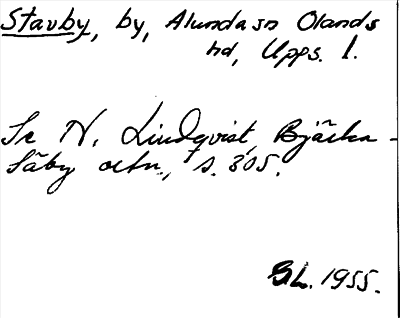 Stavby, by, Alunda sn Olands
hd, Upps. l.
Se N. Lindqvist, Bjärka-
Säby ortn., s. 305.
GL. 1955.